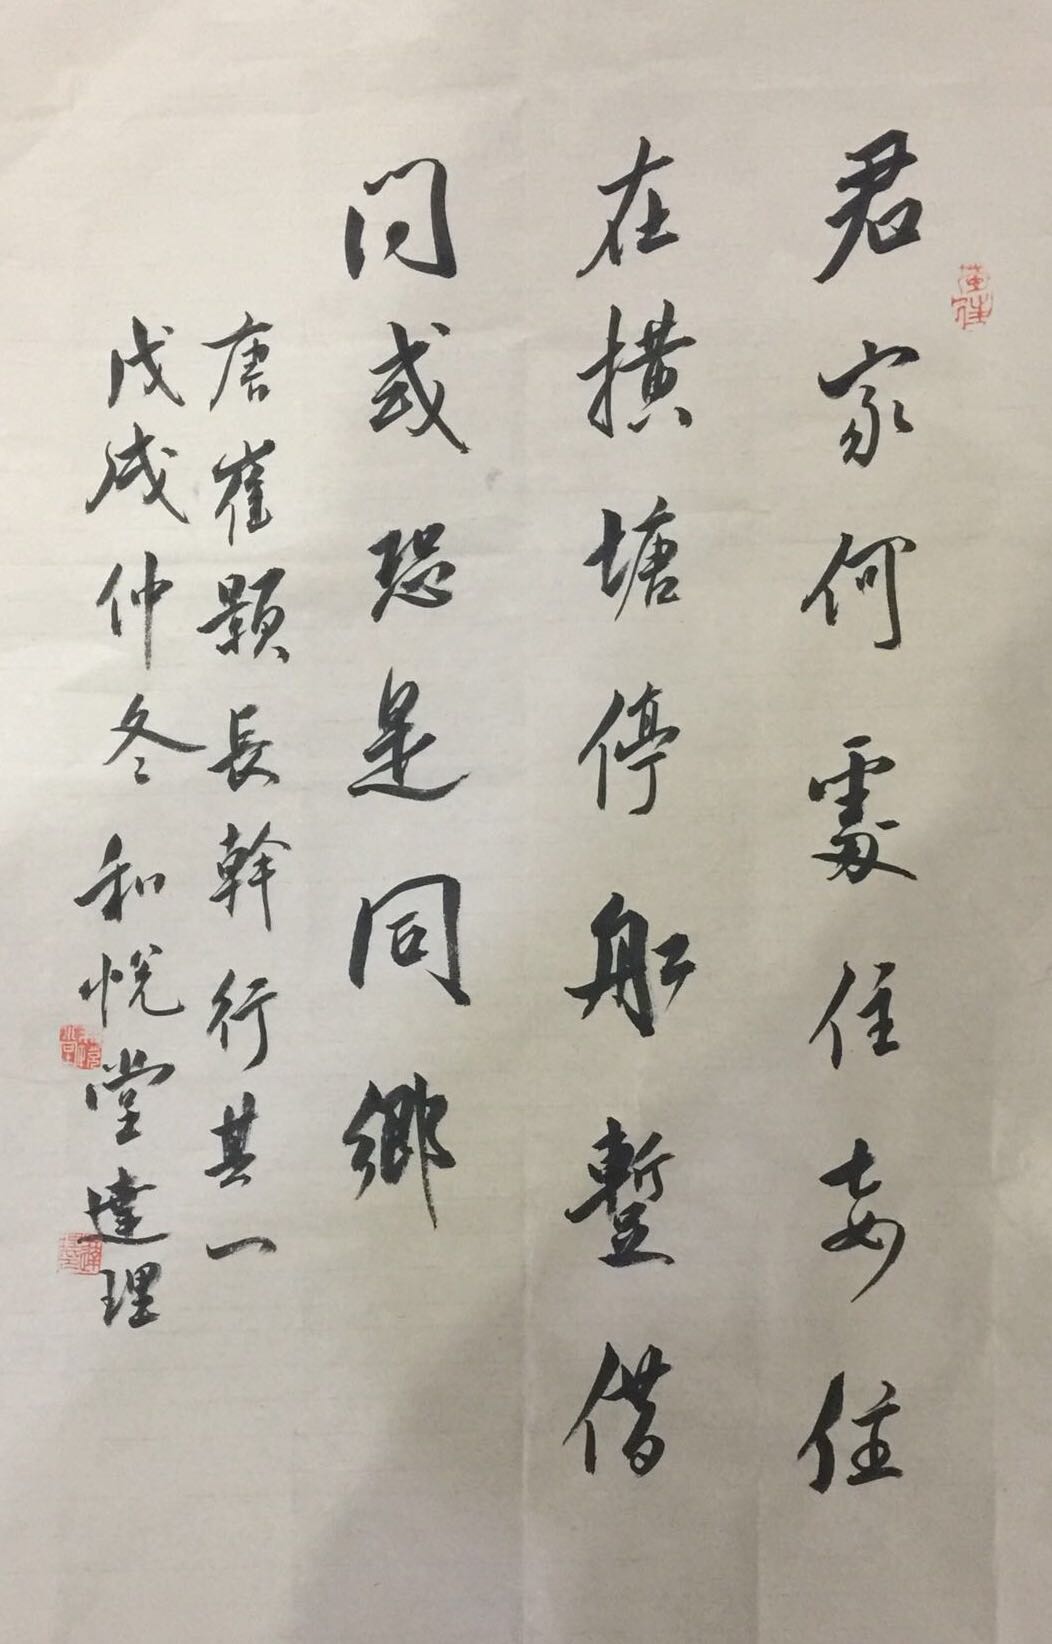 君家何處住妾住
在橫塘停船暫借
問或恐是同鄉
唐崔顥長幹行其一
戊戌仲冬和悅堂達理